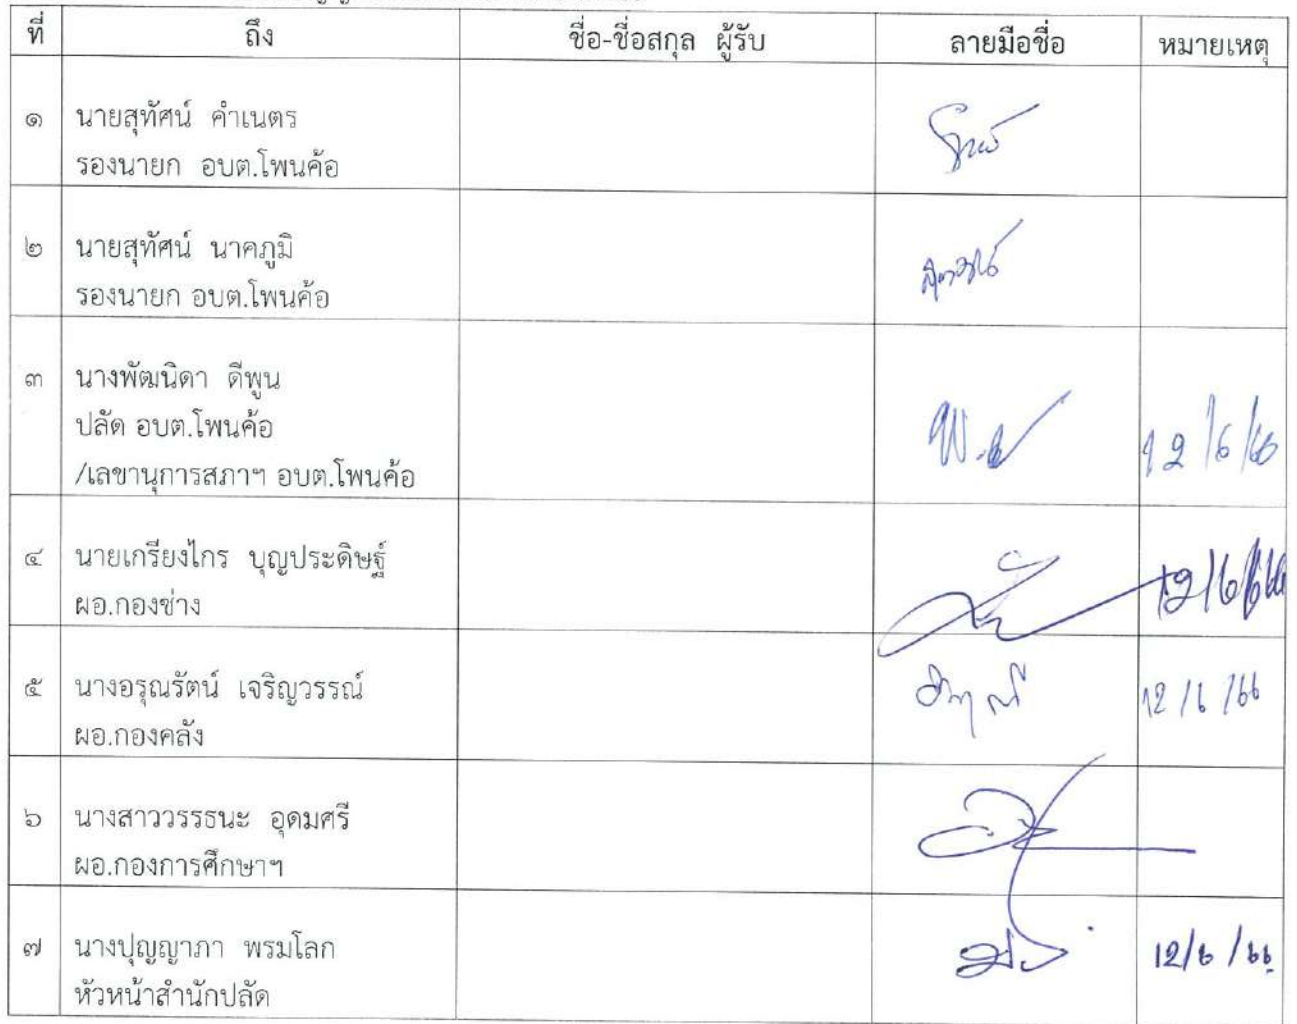 ที่ ถึง ชื่อ-ชื่อสกุล ผู้รับ ลายมือชื่อ หมายเหตุ
๑ นายสุทัศน์ คำเนตร
รองนายก อบต.โพนค้อ
๒ นายสุทัศน์ นาคภูมิ
รองนายก อบต.โพนค้อ
๓ นางพัฒนิดา ดีพูน
ปลัด อบต.โพนค้อ 12/6/66
/เลขานุการสภาฯ อบต.โพนค้อ
๔ นายเกรียงไกร บุญประดิษฐ์ 12/6/66
ผอ.กองช่าง
๕ นางอรุณรัตน์ เจริญวรรณ์ 12/6/66
ผอ.กองคลัง
๖ นางสาววรรธนะ อุดมศรี
ผอ.กองการศึกษาฯ
๗ นางปุญญาภา พรมโลก 12/6/66
หัวหน้าสำนักปลัด